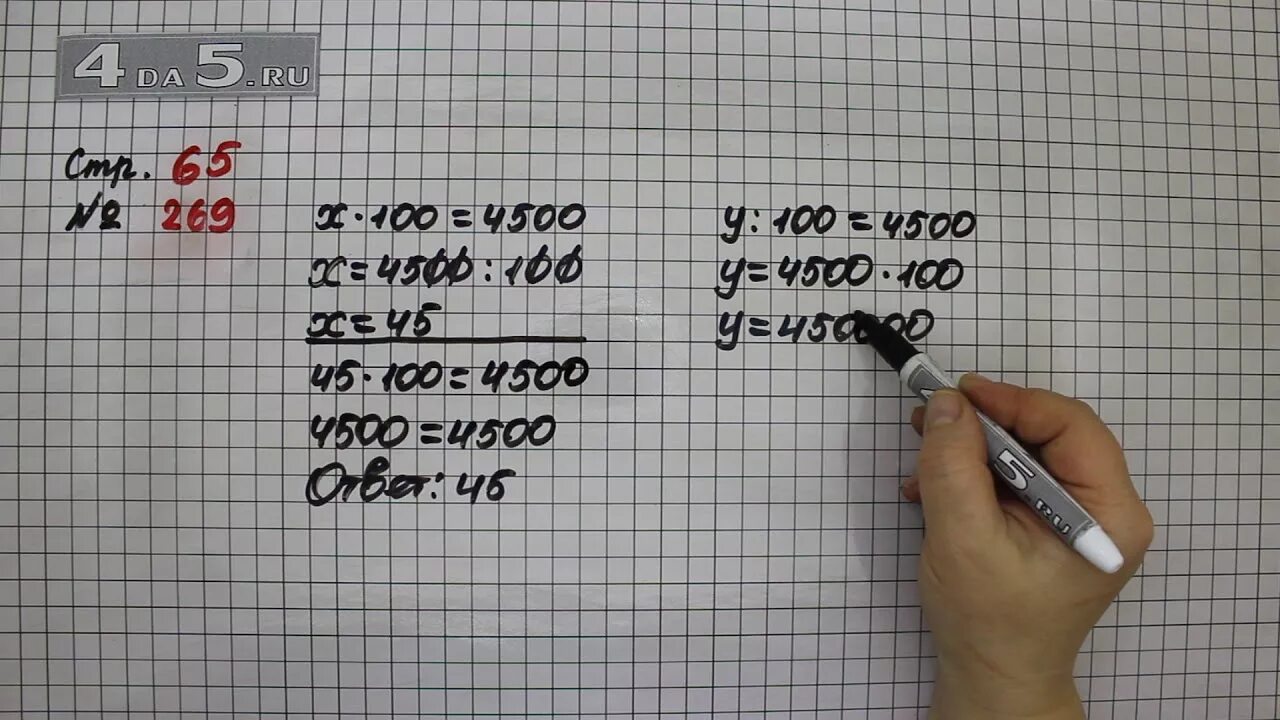 4DA5.RU
Стр. 65
№ 269
x·100=4500
x=4500:100
x=45
45·100=4500
4500=4500
Ответ: 45
y:100=4500
y=4500·100
y=450000
5.RU